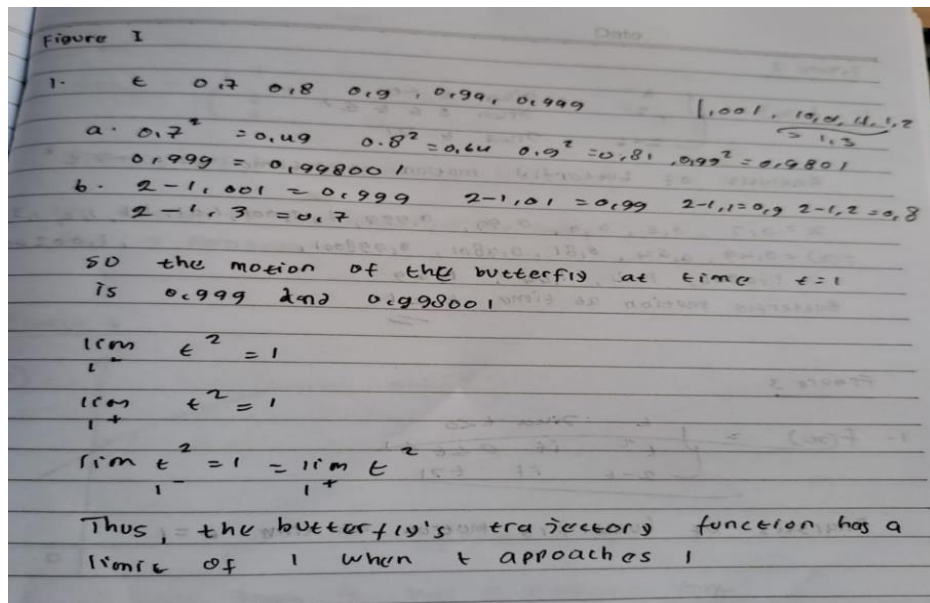 Figure I
1. t 0,7 0,8 0,9, 0,99, 0,999 1,001, 1,2
> 1,3
a. 0,7² = 0,49 0.8² = 0,64 0,9² = 0,81, 0,99² = 0,9801
0,999 = 0,998001
b. 2-1,001 = 0,999 2-1,01 = 0,99 2-1,1=0,9 2-1,2=0,8
2-1,3 = 0,7
so the motion of the butterfly at time t=1
is 0,999 and 0,998001
lim t² = 1
1⁻
lim t² = 1
1⁺
lim t² = 1 = lim t²
1⁻ 1⁺
Thus, the butterfly's trajectory function has a
limit of 1 when t approaches 1